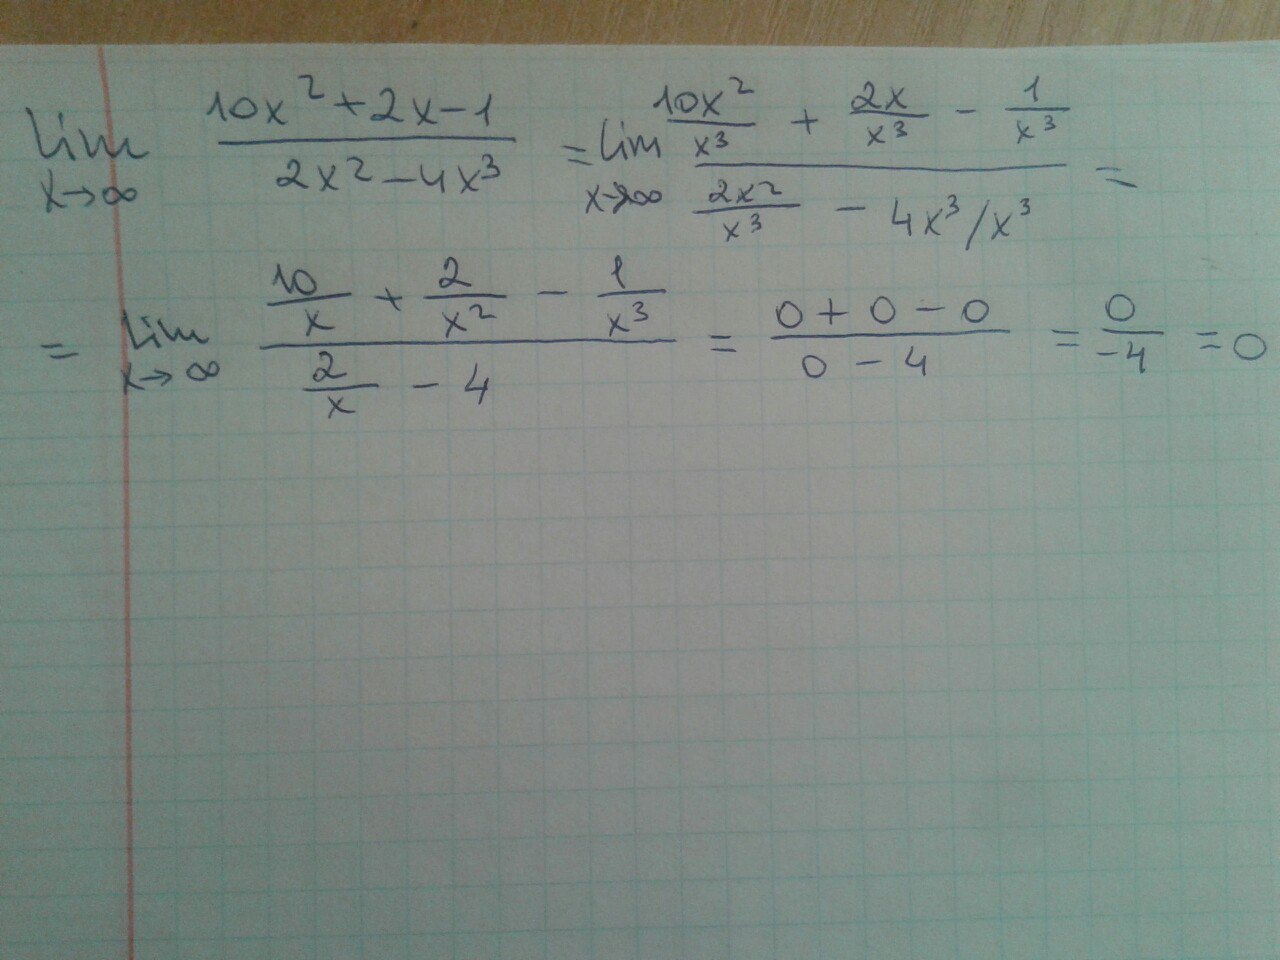 lim x→∞ (10x² + 2x - 1)/(2x² - 4x³) = lim x→∞ (10x²/x³ + 2x/x³ - 1/x³)/(2x²/x³ - 4x³/x³) =
= lim x→∞ (10/x + 2/x² - 1/x³)/(2/x - 4) = (0 + 0 - 0)/(0 - 4) = 0/-4 = 0